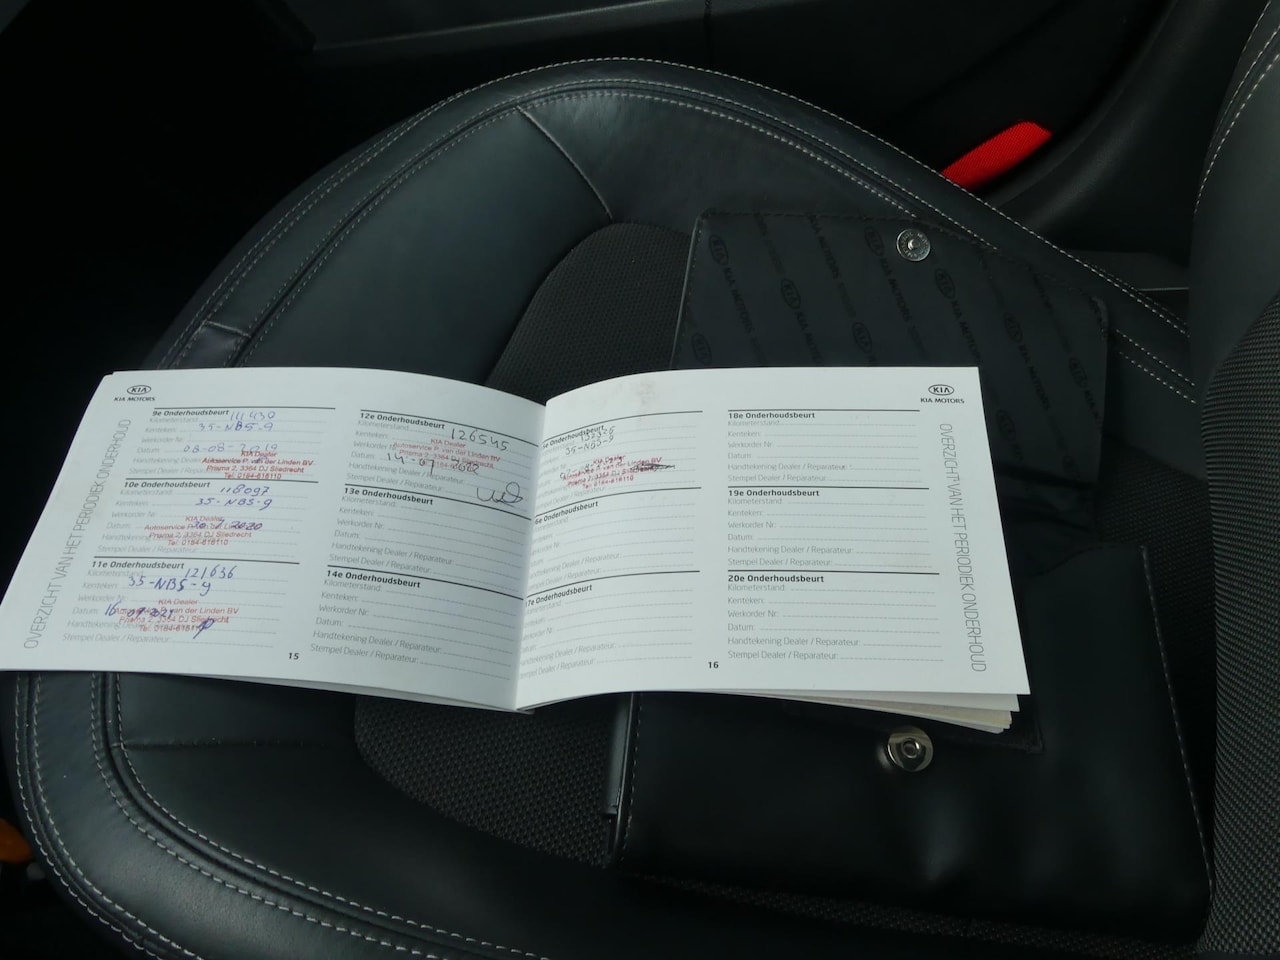 KIA
KIA MOTORS
OVERZICHT VAN HET PERIODIEK ONDERHOUD
9e Onderhoudsbeurt
Kilometerstand: 111430
Kenteken: 35-NBS-9
Werkorder Nr:
Datum: 08-08-2019
Handtekening Dealer / Reparateur:
Stempel Dealer / Reparateur:
KIA Dealer
Autoservice P. van der Linden BV
Prisma 2, 3364 DJ Sliedrecht
Tel: 0184-618110
10e Onderhoudsbeurt
Kilometerstand: 118097
Kenteken: 35-NBS-9
Werkorder Nr:
Datum: 2020
Handtekening Dealer / Reparateur:
Stempel Dealer / Reparateur:
KIA Dealer
Autoservice P. van der Linden BV
Prisma 2, 3364 DJ Sliedrecht
Tel: 0184-618110
11e Onderhoudsbeurt
Kilometerstand: 121636
Kenteken: 35-NBS-9
Werkorder Nr:
Datum: 16-09-2021
Handtekening Dealer / Reparateur:
Stempel Dealer / Reparateur:
KIA Dealer
Autoservice P. van der Linden BV
Prisma 2, 3364 DJ Sliedrecht
Tel: 0184-618110
12e Onderhoudsbeurt
Kilometerstand: 126545
Kenteken:
Werkorder Nr:
Datum: 14-07-2022
Handtekening Dealer / Reparateur:
Stempel Dealer / Reparateur:
KIA Dealer
Autoservice P. van der Linden BV
Prisma 2, 3364 DJ Sliedrecht
Tel: 0184-618110
13e Onderhoudsbeurt
Kilometerstand:
Kenteken:
Werkorder Nr:
Datum:
Handtekening Dealer / Reparateur:
Stempel Dealer / Reparateur:
14e Onderhoudsbeurt
Kilometerstand:
Kenteken:
Werkorder Nr:
Datum:
Handtekening Dealer / Reparateur:
Stempel Dealer / Reparateur:
15
Onderhoudsbeurt
35-NBS-9
KIA Dealer
Autoservice P. van der Linden BV
Prisma 2, 3364 DJ Sliedrecht
Tel: 0184-618110
6e Onderhoudsbeurt
Kilometerstand:
Kenteken:
Werkorder Nr:
Datum:
Handtekening Dealer / Reparateur:
Stempel Dealer / Reparateur:
17e Onderhoudsbeurt
Kilometerstand:
Kenteken:
Werkorder Nr:
Datum:
Handtekening Dealer / Reparateur:
Stempel Dealer / Reparateur:
18e Onderhoudsbeurt
Kilometerstand:
Kenteken:
Werkorder Nr:
Datum:
Handtekening Dealer / Reparateur:
Stempel Dealer / Reparateur:
19e Onderhoudsbeurt
Kilometerstand:
Kenteken:
Werkorder Nr:
Datum:
Handtekening Dealer / Reparateur:
Stempel Dealer / Reparateur:
20e Onderhoudsbeurt
Kilometerstand:
Kenteken:
Werkorder Nr:
Datum:
Handtekening Dealer / Reparateur:
Stempel Dealer / Reparateur:
16
KIA
KIA MOTORS
OVERZICHT VAN HET PERIODIEK ONDERHOUD
KIA MOTORS